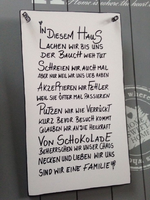 IN DIESEM HAUS
LACHEN WIR BIS UNS
DER BAUCH WEH TUT
SCHREIEN WIR AUCH MAL
ABER NUR WEIL WIR UNS LIEB HABEN
AKZEPTIEREN WIR FEHLER
WEIL SIE ÖFTER MAL PASSIEREN
PUTZEN WIR WIE VERRÜCKT
KURZ BEVOR BESUCH KOMMT
GLAUBEN WIR AN DIE HEILKRAFT
VON SCHOKOLADE
BEHERRSCHEN WIR UNSER CHAOS
NECKEN UND LIEBEN WIR UNS
SIND WIR EINE FAMILIE